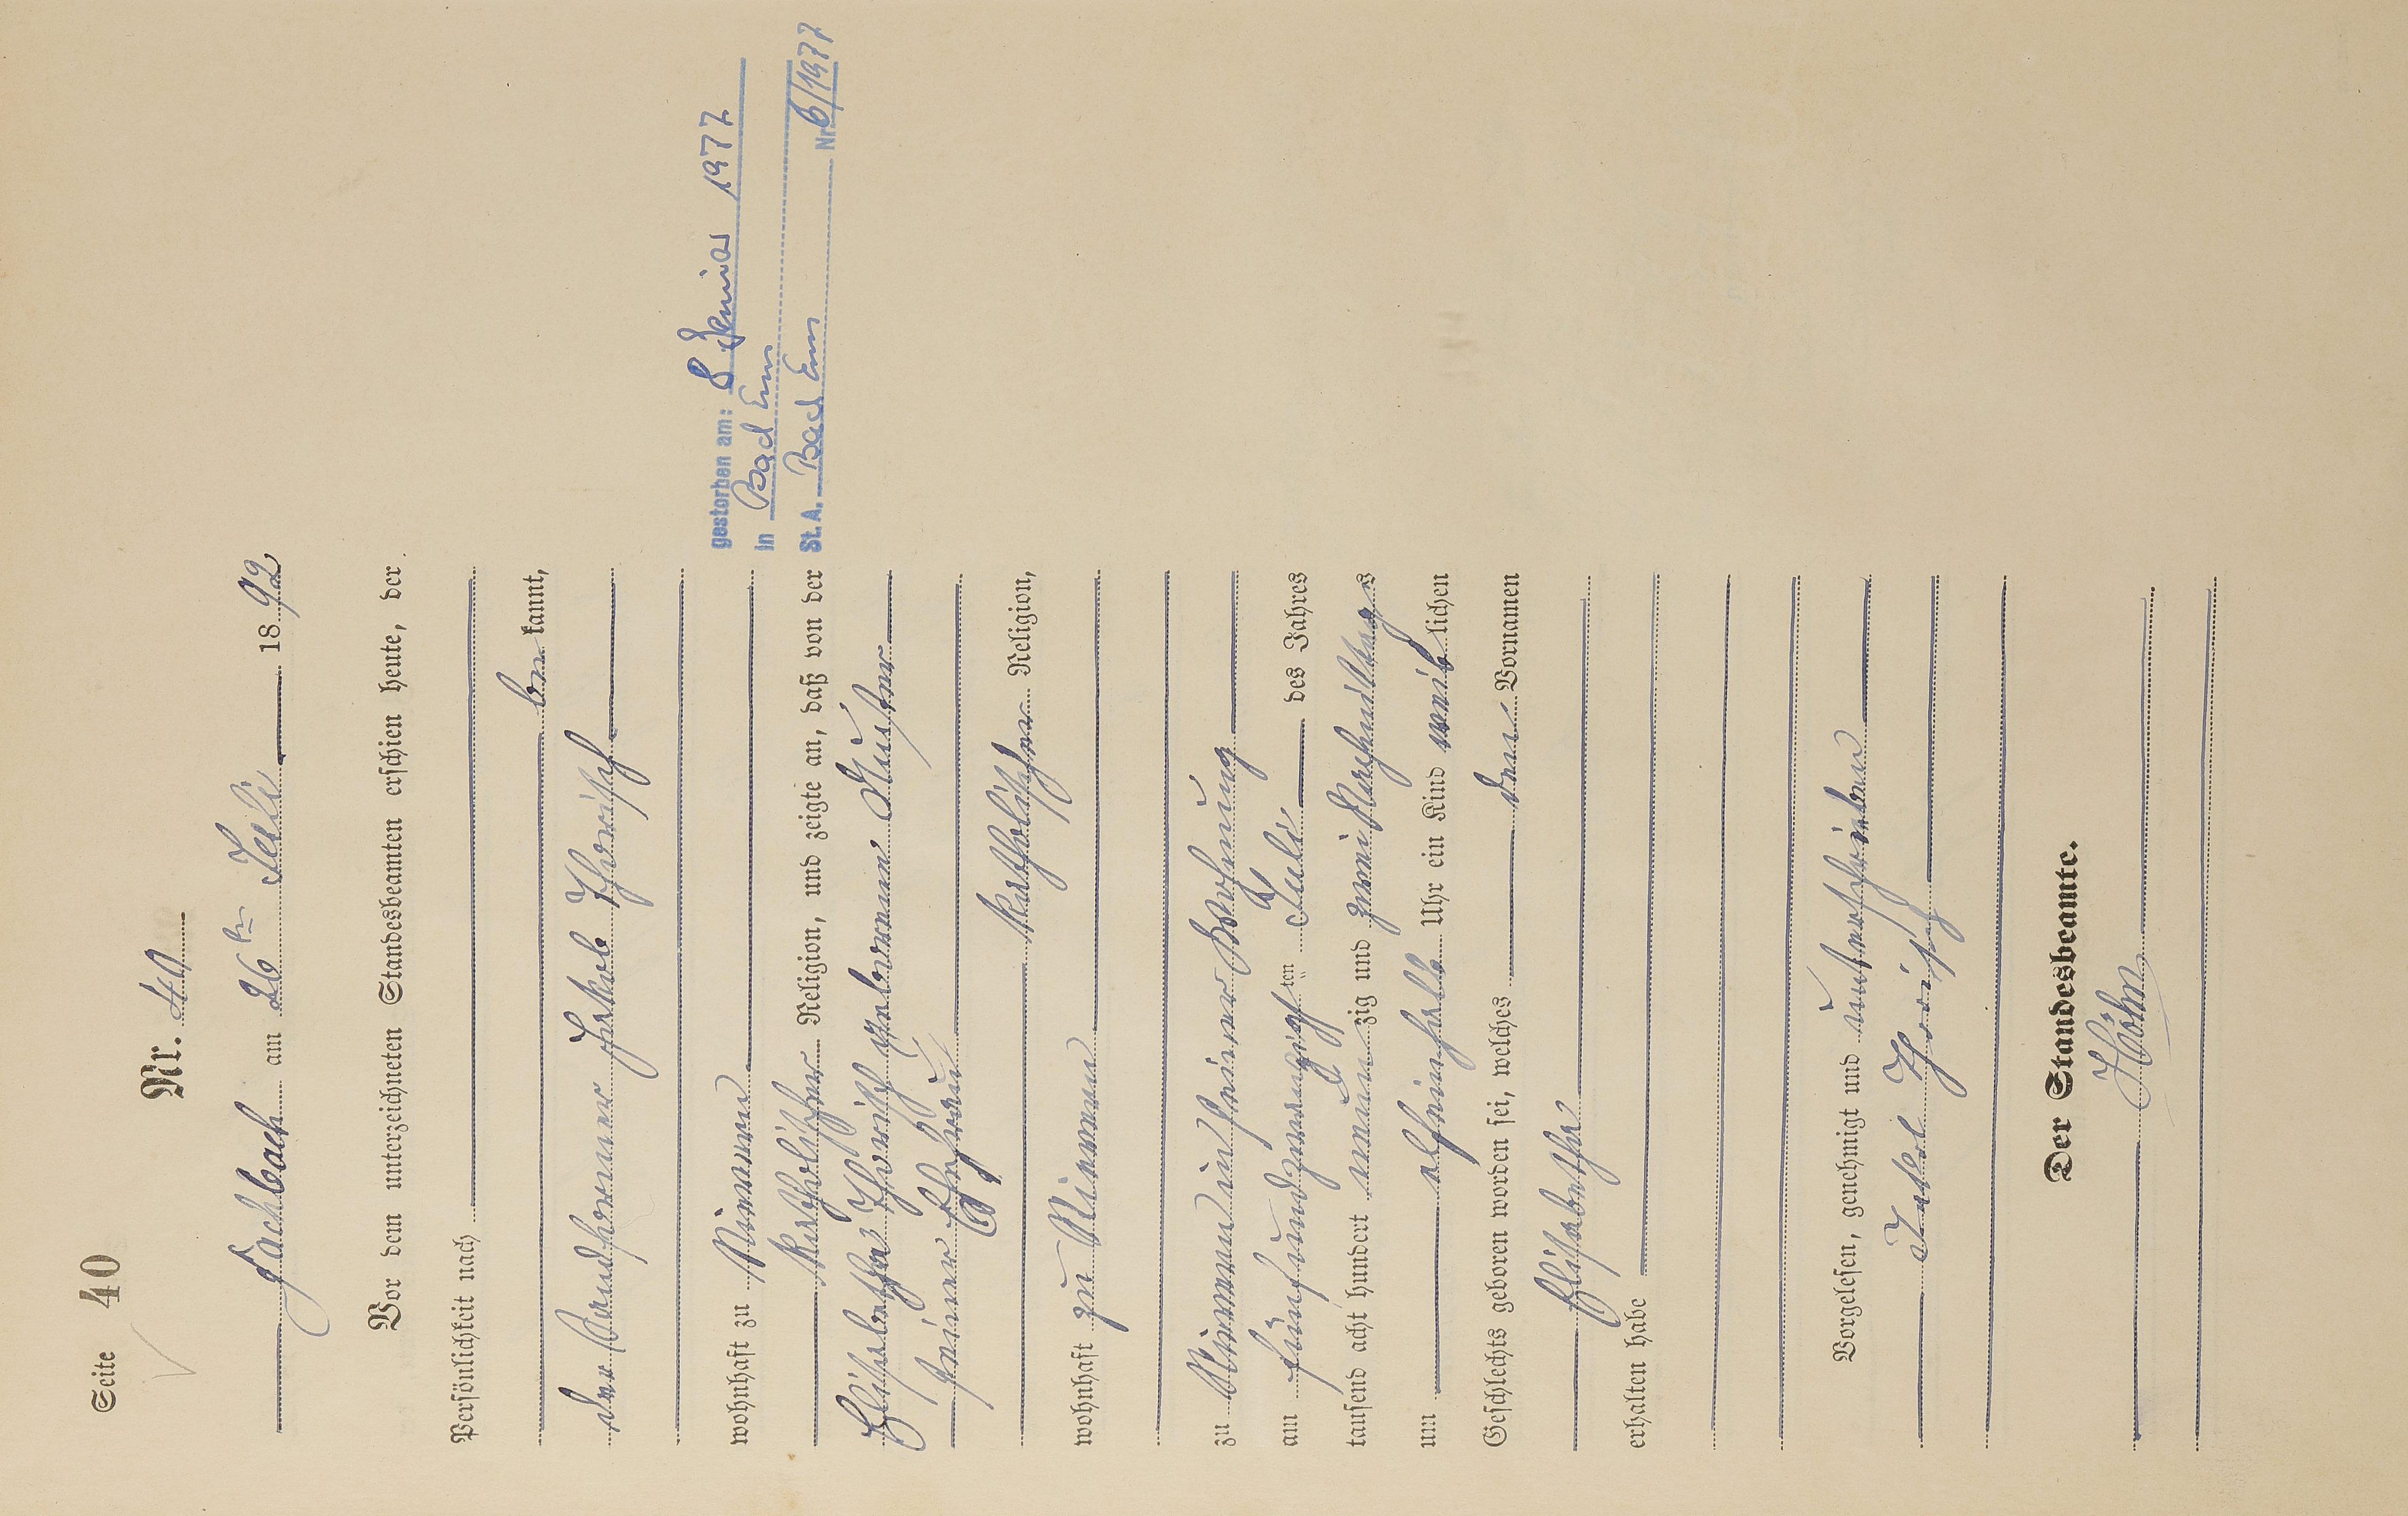 Seite 40
Nr. 40
Fachbach am 26ten Juli 1892
Vor dem unterzeichneten Standesbeamten erschien heute, der
Persönlichkeit nach
be kannt,
der Landsmann Jakob Thorisch
wohnhaft zu Nievern
katholischer Religion, und zeigte an, daß von der
Elisabetha Thorisch geborenen Muster
seiner Ehefrau
katholischer Religion,
wohnhaft zu Nievern
zu Nievern in seiner Wohnung
am fünfundzwanzigsten Juli des Jahres
tausend acht hundert neunzig und zwei Nachmittags
um elfeinhalb Uhr ein Kind weiblichen
Geschlechts geboren worden sei, welches den Vornamen
Elisabetha
erhalten habe
Vorgelesen, genehmigt und unterschrieben
Jakob Thorisch
Der Standesbeamte.
Höhn
gestorben am: 8. Januar 1977
in Bad Ems
St. A. Bad Ems Nr. 6/1977